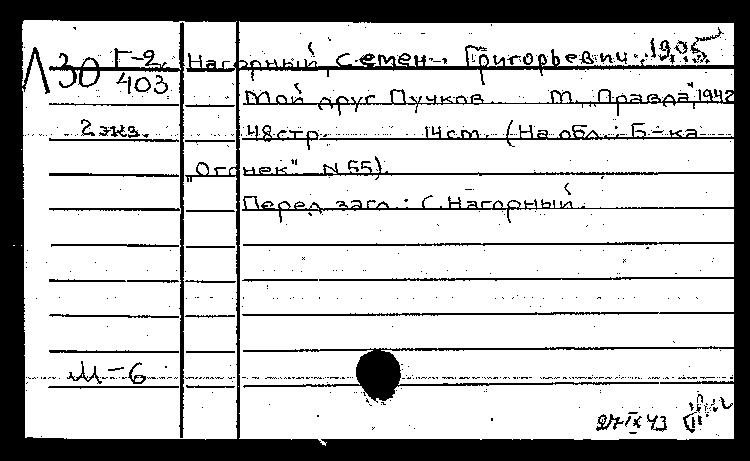 Л30 Г-2 403
Нагорный, Семен Григорьевич. 1905
Мой друг Пучков М., „Правда", 1942
2 экз.
48 стр. 14 cm. (На обл.: Б-ка
„Огонек" N 55).
Перед загл.: С. Нагорный.
М-6
27 IX 43